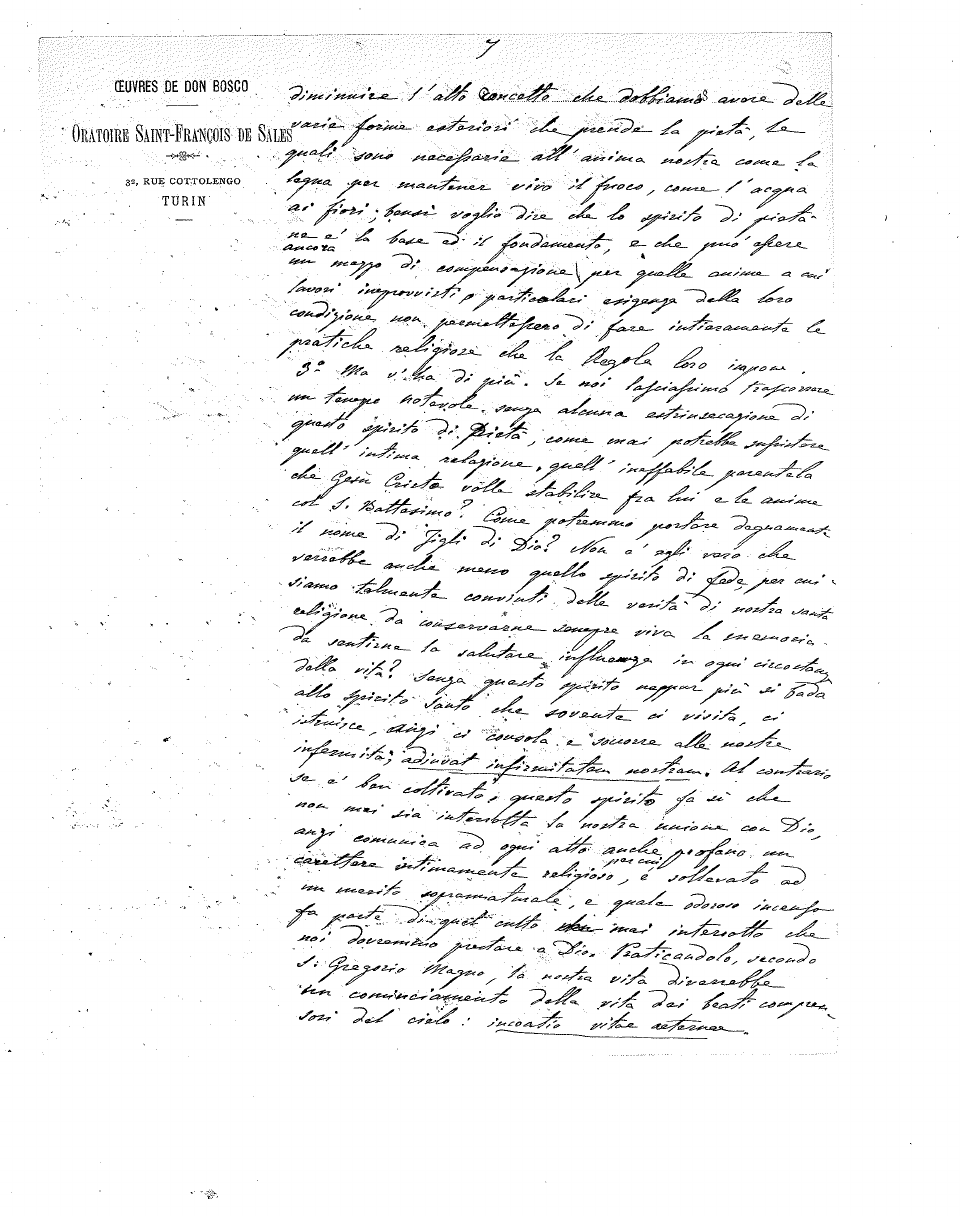 7
ŒUVRES DE DON BOSCO
ORATOIRE SAINT-FRANÇOIS DE SALES
32, RUE COTTOLENGO
TURIN
diminuire l'alto concetto che dobbiamo avere delle
varie forme esteriori che prende la pietà, le
quali sono necessarie all'anima nostra come la
legna per mantener vivo il fuoco, come l'acqua
ai fiori; bensì voglio dire che lo spirito di pietà
ne è la base ed il fondamento, e che può essere
ancora
un mezzo di compensazione per quelle anime a cui
lavori improvvisti o particolari esigenze della loro
condizione non permettessero di fare intieramente le
pratiche religiose che la Regola loro impone.
3º Ma v'ha di più. Se noi lasciassimo trascorrere
un tempo notevole senza alcuna estrinsecazione di
questo spirito di Pietà, come mai potrebbe sussistere
quell'intima relazione, quell'ineffabile parentela
che Gesù Cristo volle stabilire fra lui e le anime
col S. Battesimo? Come potremmo portare degnamente
il nome di Figli di Dio? Non è egli vero che
verrebbe anche meno quello spirito di fede, per cui
siamo talmente convinti delle verità di nostra santa
religione da conservarne sempre viva la memoria
da sentirne la salutare influenza in ogni circostanza
della vita? Senza questo spirito neppur più si bada
allo Spirito Santo che sovente ci visita, ci
istruisce, anzi ci consola e soccorre alle nostre
infermità; adiuvat infirmitatem nostram. Al contrario
se è ben coltivato, questo spirito fa sì che
non mai sia interrotta la nostra unione con Dio,
anzi comunica ad ogni atto anche profano un
carattere intimamente religioso, per cui è sollevato ad
un merito soprannaturale, e quale odoroso incenso
fa parte di quel culto mai interrotto che
noi dovremmo prestare a Dio. Praticandolo, secondo
S. Gregorio Magno, la nostra vita diverrebbe
un cominciamento della vita dei beati compren-
sori del cielo: incoatio vitae aeternae.